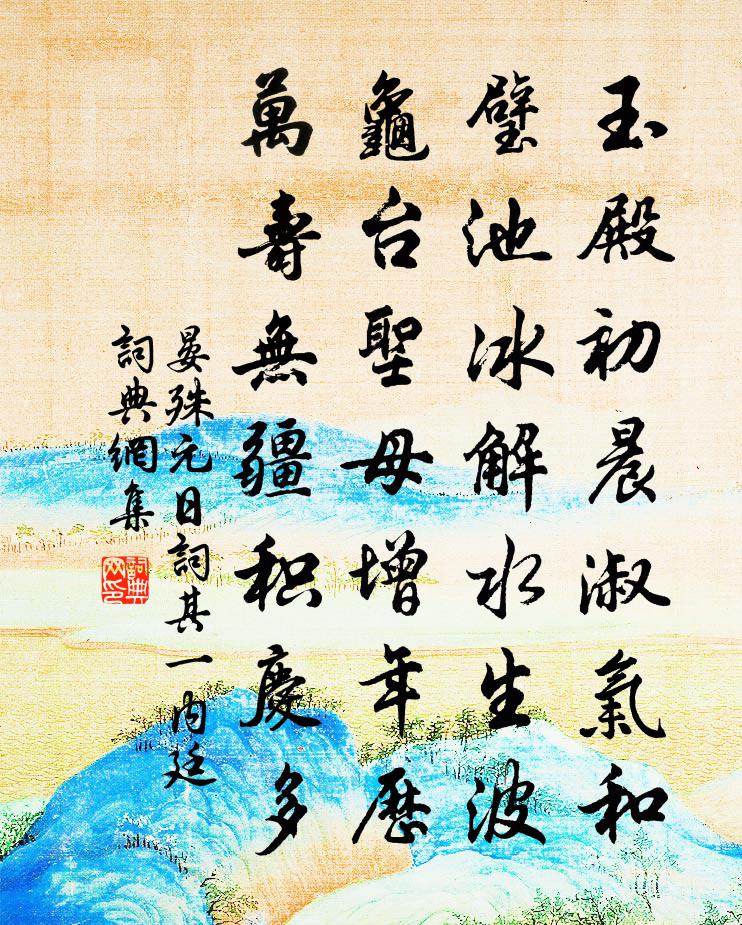 玉殿初晨淑氣和
璧池冰解水生波
龜台聖母增年歷
萬壽無疆积慶多
晏殊元日詞其一内廷
詞典網集
詞典
网印